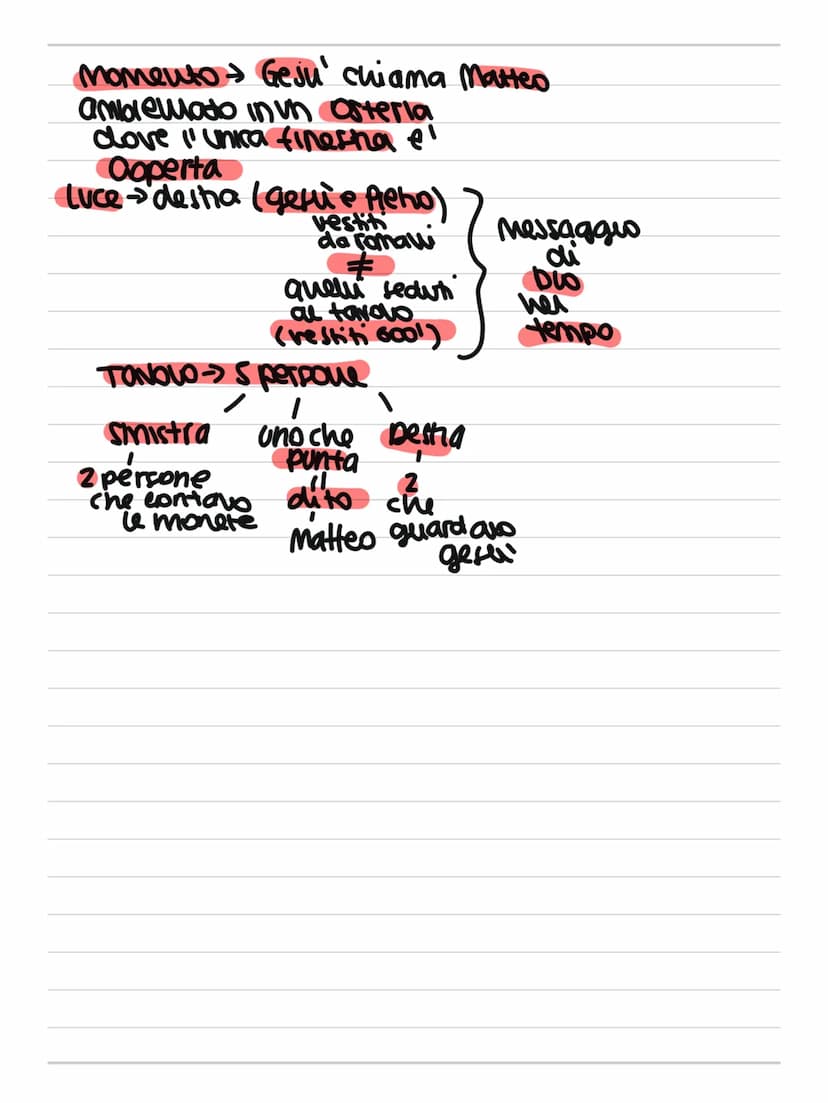 Momento → Gesù chiama Matteo
ambientato in un osteria
dove l'unica finestra e'
aperta
luce → destra (gesù e Pietro)
vestiti
da romani
≠
quelli seduti
al tavolo
(vestiti 600')
messaggio
di
Dio
nel
tempo
Tavolo → 5 persone
sinistra uno che Destra
punta
il
2 persone dito 2
che contano che
le monete Matteo guardano
gesù